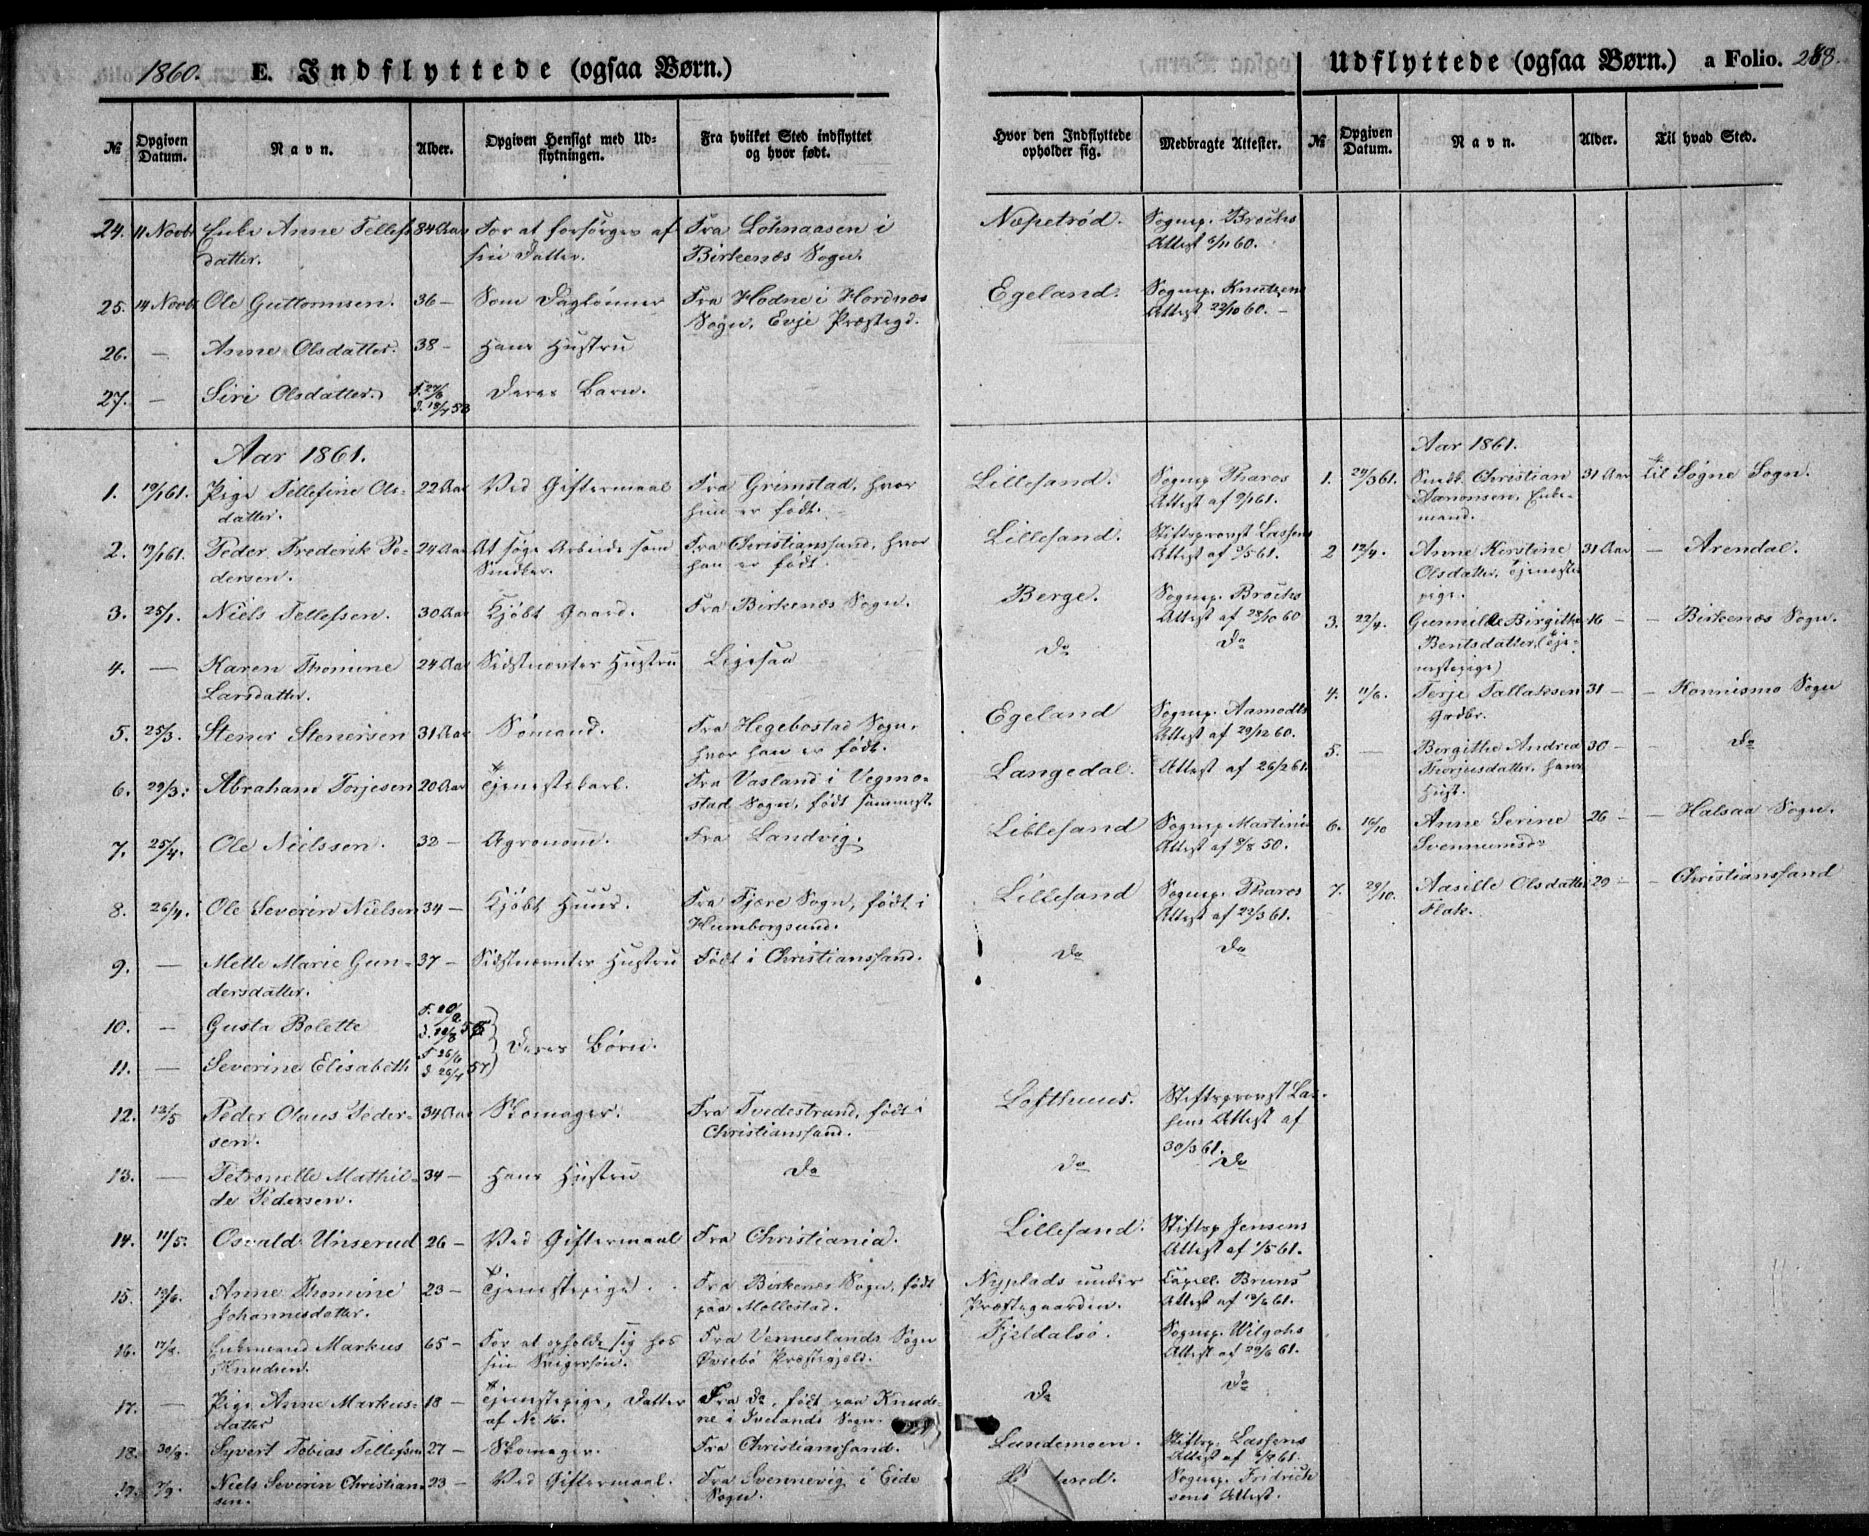 1860. E. Indflyttede (ogsaa Børn.)
№ Opgiven Datum. Navn. Alder. Opgiven Hensigt med Udflytningen. Fra hvilket Sted indflyttet og hvor født.
24. 11 Novbr Enke Anne Tellefs 84 Aar For at forsørges af Fra Lohnaasen i
datter. sin Datter. Birkenæs Sogn.
25. 14 Novbr Ole Guttormsen. 36 — Som Daglønner Fra Hodne i Hordnæs
Sogn, Evje Præstegd.
26. — Anne Olsdatter. 38 — Hans Hustru
27. — Siri Olsdatter. Deres Barn.
Aar 1861.
1. 19/1 61. Pige Tellefine Ols- 22 Aar Ved Giftermaal Fra Grimstad, hvor
datter. hun er født.
2. 19/1 61. Peder Frederik Pe- 24 Aar At søge Arbeide som Fra Christianssand, hvor
dersen. Snedker. han er født.
3. 25/1. Niels Tellefsen. 30 Aar Kjøbt Gaard. Fra Birkenæs Sogn.
4. — Karen Thomine 24 Aar Sidstnævntes Hustru Ligesaa
Larsdatter.
5. 25/3. Stener Stenersen 31 Aar Sømand. Fra Hegebostad Sogn,
hvor han er født.
6. 29/3. Abraham Torjesen 20 Aar Tjenestekarl. Fra Vasland i Vegmo-
stad Sogn, født sammest.
7. 25/4. Ole Nielssen. 32 — Agronom. Fra Landvig.
8. 26/4. Ole Severin Nielsen 34 — Kjøbt Huus. Fra Fjære Sogn, født i
Humborgsund.
9. — Mette Marie Gun- 37 — Sidstnævntes Hustru Født i Christianssand.
dersdatter.
10. — Gusta Bolette
Deres Børn.
11. — Severine Elisabeth
12. 12/5 Peder Olaus Peder- 34 Aar Skomager. Fra Tvedestrand, født i
sen. Christianssand.
13. — Petronelle Mathil- 34 — Hans Hustru Do
de Pedersen.
14. 11/5. Osvald Unserud 26 — Ved Giftermaal Fra Christiania.
15. Anne Thomine 23 — Tjenestepige. Fra Birkenæs Sogn, født
Johannesdatter. paa Mollestad.
16. Enkemand Markus 65 — For at opholde sig hos Fra Venneslands Sogn
Knudsen. sin Svigersøn. Øvrebø Præstegjeld.
17. — Pige Anne Markus- 18 — Tjenestepige, Datter Fra Do, født paa Knude-
datter af No 16. ne i Ivelands Sogn.
18. 30/8. Syvert Tobias Tellefsen 27 — Skomager. Fra Christianssand.
19. 7/9. Niels Severin Christian- 23 — Ved Giftermaal. Fra Svennevig i Eide
sen. Sogn.
Udflyttede (ogsaa Børn.) a Folio. 288.
Hvor den Indflyttede opholder sig. Medbragte Attester. № Opgiven Datum. Navn. Alder. Til hvad Sted.
Næpetrød. Sognep. Brochs
Attest 60.
Egeland. Sognep. Knutzens
Attest 22/10 60. —
Aar 1861.
Lillesand. Sognep Tharos 1. 29/3 61. Snedk. Christian 31 Aar til Søgne Sogn.
Attest af 9/1 61. Aanonsen, Enke-
mand.
Lillesand. Stiftsprovst Lassens
Attest af 61. 2 12/4. Anne Kirstine 31 Aar — Arendal.
Olsdatter, Tjeneste-
pige.
Berge. Sognep. Brochs
Attest af 28/10 60 3. 22/4. Gunnille Birgitte 16 — — Birkenæs Sogn.
Do Do Bentsdatter (Tje-
nestepige)
4. 11/6. Terje Tallaksen 31 — — Konnismo Sogn
Grdbr.
Egeland Sognep. Aamodts
Attest af 29/12 60.
5. — Birgithe Andrea 30 — — Do
Thorjusdatter, hans
Hust.
Langedal. Attest af 26/2 61.
Lillesand Sognep Martini's 6. 16/10 Anne Serine 26 — — Halsaa Sogn.
Attest af 9/8 50. Svennumsdr
Lillesand Sognep. Tharos 7. 29/10. Aasille Olsdatter 29 — — Christianssand
Attest af 22/3 61. Flak.
Do Do
Lofthuus. Stiftsprovst Las-
sens Attest af
30/3 61.
Do Do
Lillesand. Stiftsp Jensens
Attest af 1/5 61.
Nyplads under Capell. Bruns
Præstegaarden. Attest af 61.
Fjeldalsø. Sognep. Wilgohs
Attest af 29/6 61.
Do Do
Lundemoen. Stiftsp. Lassens
Attest af 61.
Sognep. Fridrich
sens Attest.